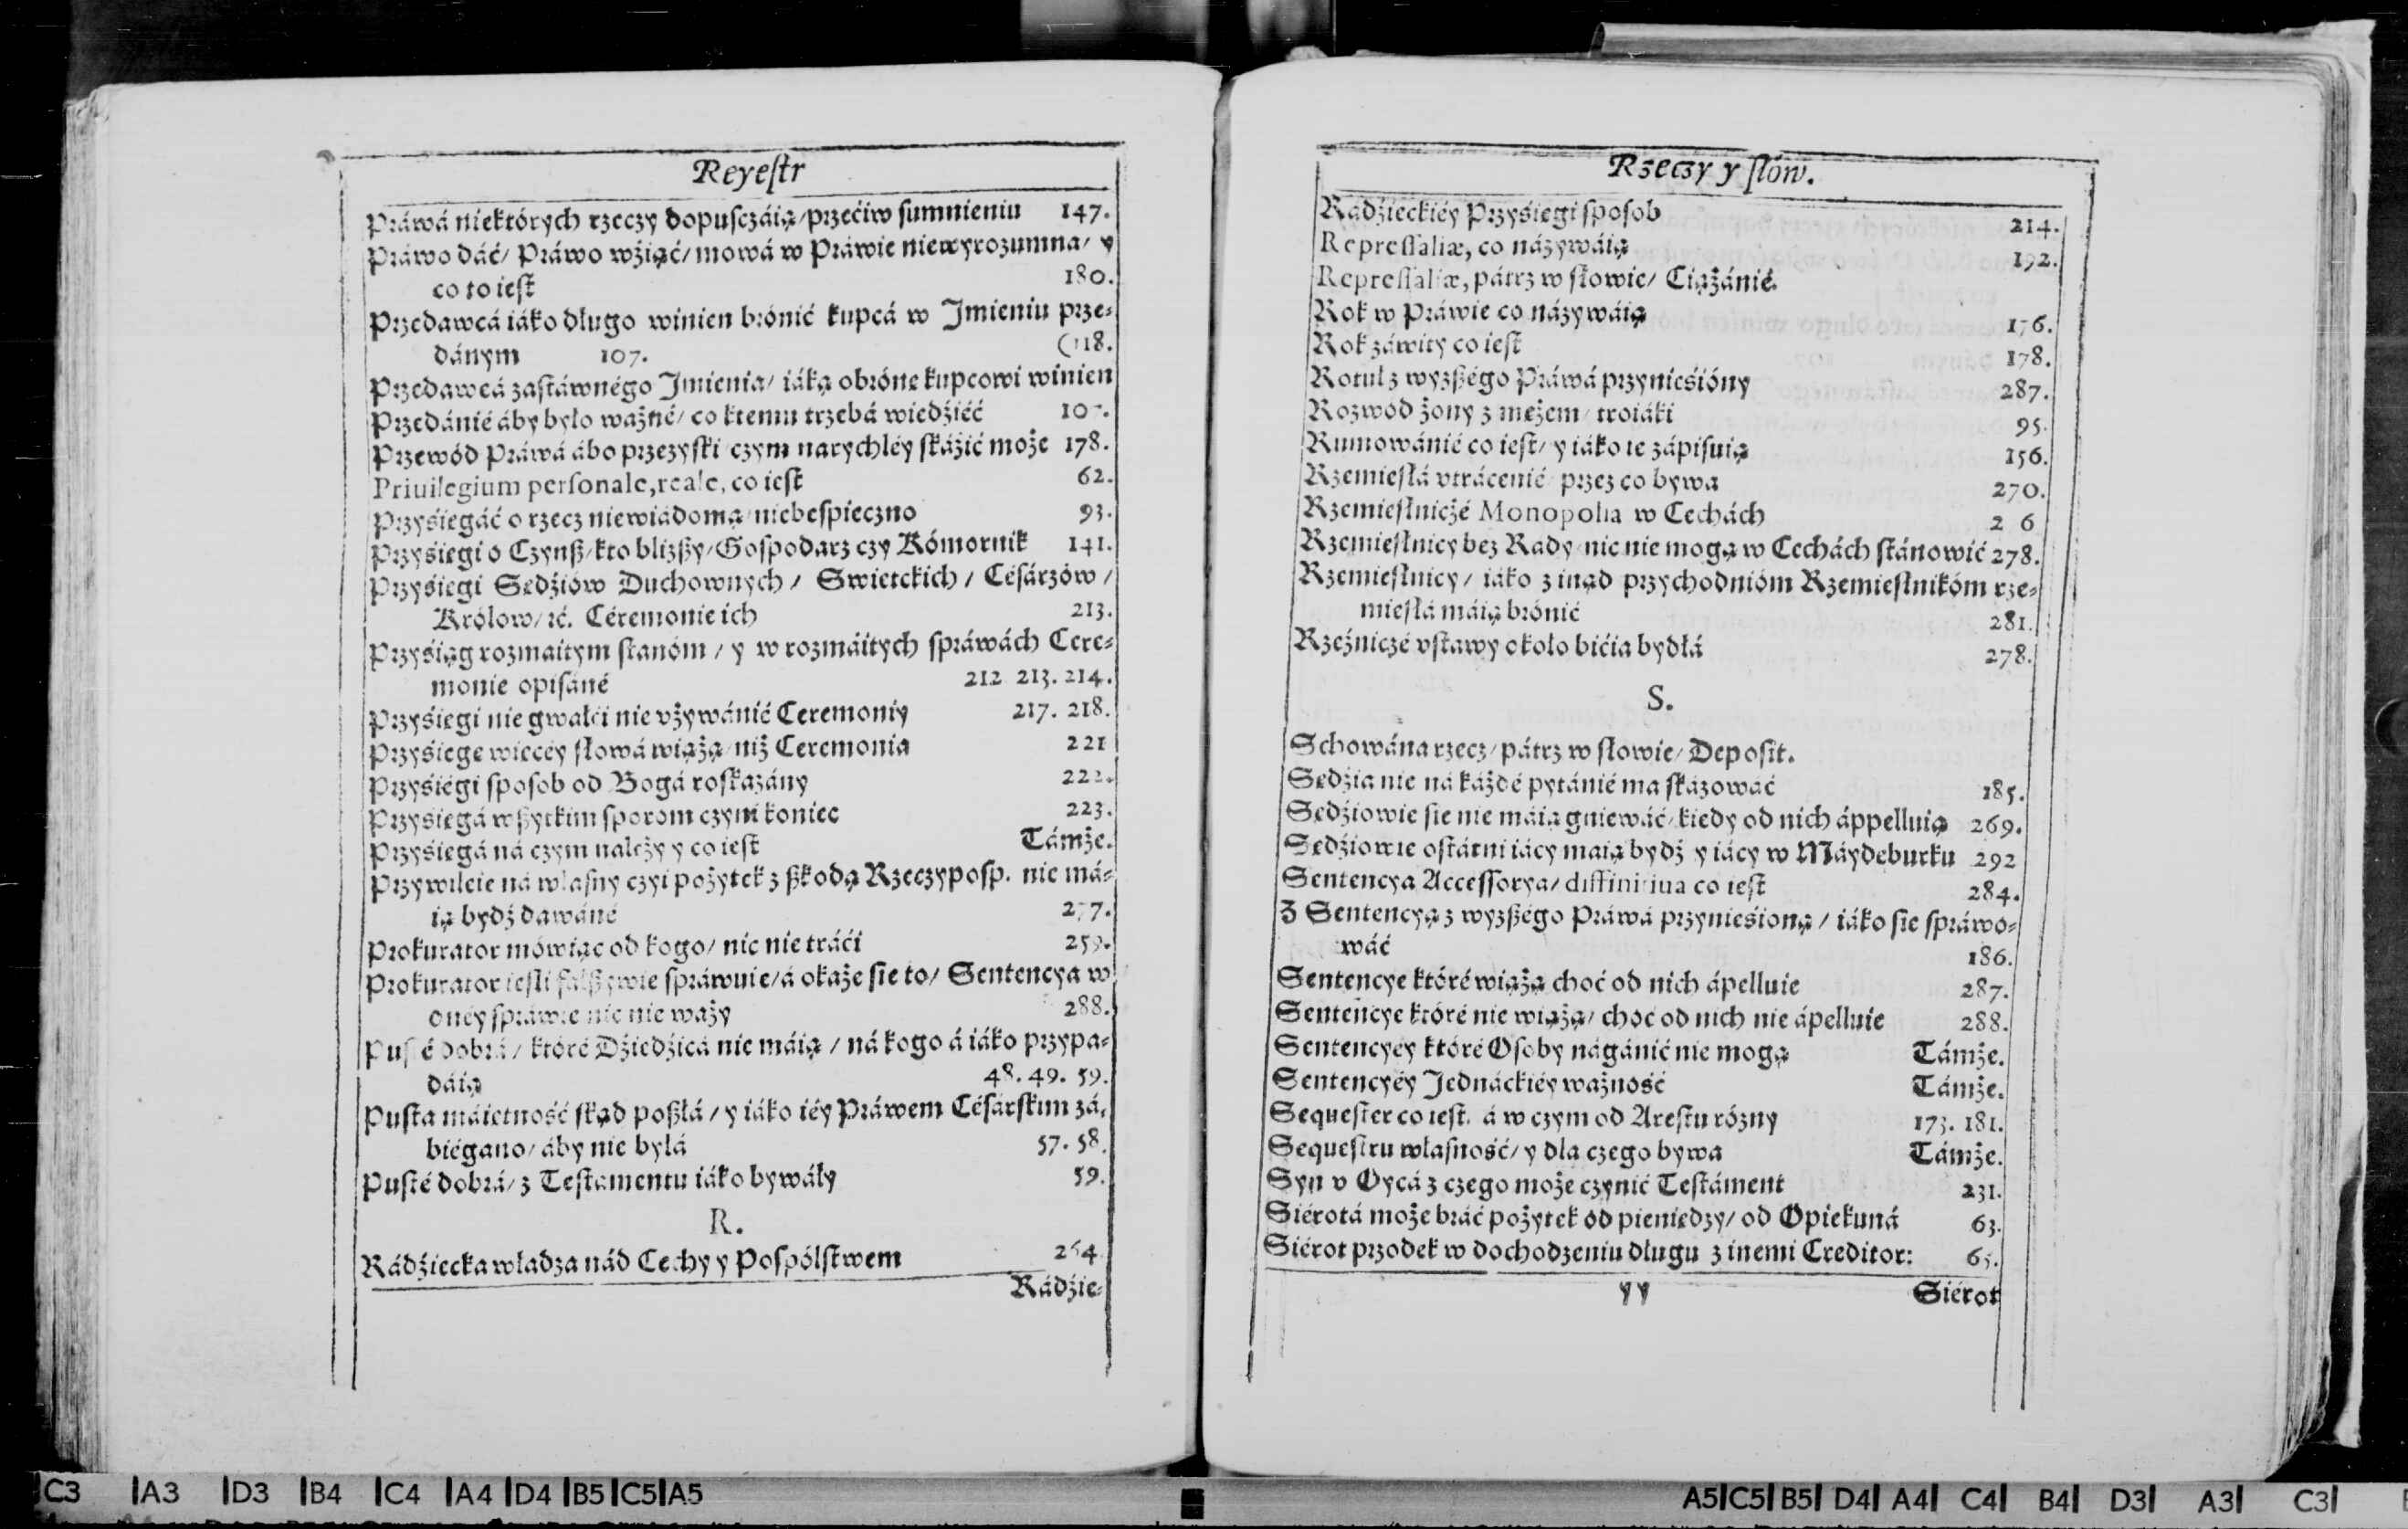 Reyeſtr
Práwá niektórych rzeczy dopuſczáią/przećiw ſumnieniu 147.
Práwo dáć/ Práwo wźiąć/ mowá w Práwie niewyrozumna/ y
co to ieſt 180.
Przedawcá iáko długo winien brónić kupcá w Jmieniu prze-
dánym 107. (118.
Przedawcá zaſtáwnégo Jmienia/ iáką obrónę kupcowi winien
Przedánié áby było ważné/ co ktemu trzebá wiedźiéć
Przewód Práwá ábo przezyſki czym narychléy ſkáźić może 178.
Priuilegium perſonale, reale, co ieſt 62.
Przyśięgáć o rzecz niewiádomą/niebeſpieczno 93.
Przyśięgi o Czynß/kto bliżßy/Goſpodarz czy Kómornik 141.
Przyśięgi Sędźiów Duchownych/ Swietckich/ Céſárzów/
Królow/ ꝛć. Céremonie ich 213.
Przyśiąg rozmaitym ſtanóm/ y w rozmáitych ſpráwách Cere-
monie opiſáné 212 213. 214.
Przyśięgi nie gwałći nie vżywánié Ceremoniy 217. 218.
Przyśięgę więcéy ſłowá wiążą/niż Ceremonia 221
Przyśięgi ſpoſob od Bogá roſkazány 222.
Przyśięgá wßytkim ſporom czyni koniec 223.
Przyśięgá ná czym należy y co ieſt Támże.
Przywileie ná własny czyi pożytek z ßkodą Rzeczypoſp. nie má-
ią bydź dawáné 277.
Prokurator mówiąc od kogo/ nic nie tráći 259.
Prokurator ieſli fałßywie ſpráwuie/á okaże ſie to/ Sentencya w
onéy ſpráwie nic nie waży 288.
Puſté dobrá/ któré Dźiedźicá nie máią/ ná kogo á iáko przypa-
dáią 48. 49. 59.
Puſta máiętność ſkąd poßłá/ y iáko iéy Práwem Céſárſkim zá-
biégano/ áby nie byłá 57. 58.
Puſté dobrá/ z Teſtamentu iáko bywáły 59.
R.
Rádźiecka władza nád Cechy y Poſpólſtwem
Rádźie-
Rzeczy y ſłów.
Rádźieckiéy Przyśięgi ſpoſob 214.
Repreſſaliæ, co názywáią 192.
Repreſſaliæ, pátrz w ſłowie/ Ciążánié.
Rok w Práwie co názywáią 176.
Rok záwity co ieſt 178.
Rotul z wyzßégo Práwá przynieśióny 287.
Rozwód żony z mężem/ troiáki 95.
Rumowánié co ieſt/ y iáko ie zápiſuią 156.
Rzemieſłá vtrácenié/ przez co bywa 270.
Rzemieſłniczé Monopolia w Cechách 2 6
Rzemieſłnicy bez Rady nic nie mogą w Cechách ſtánowić 278.
Rzemieſłnicy/ iáko z inąd przychodnióm Rzemieſłnikóm rze-
mieſłá máią brónić 281.
Rzeźniczé vſtawy około bićia bydłá 278.
S.
Schowána rzecz/ pátrz w ſłowie/ Depoſit.
Sędźia nie ná káżdé pytánié ma ſkázowáć 185.
Sędźiowie ſie nie máią gniewáć/ kiedy od nich áppelluią 269.
Sędźiowie oſtátni iácy maią bydź y iácy w Máydeburku 292
Sentencya Acceſſorya/ diffinitiua co ieſt 284.
Z Sentencyą z wyzßégo Práwá przynieśioną/ iáko ſie ſpráwo-
wáć 186.
Sentencye któré wiążą choć od nich ápelluie 287.
Sentencye któré nie wiążą/ choć od nich nie ápelluie 288.
Sentencyéy któré Oſoby nágánić nie mogą Támże.
Sentencyéy Jednáckiéy ważność Támże.
Sequeſter co ieſt. á w czym od Areſtu rózny 173. 181.
Sequeſtru właſność/ y dla czego bywa Támże.
Syn v Oycá z czego może czynić Teſtáment 231.
Siérotá może bráć pożytek od pieniędzy/ od Opiekuná 63.
Siérot przodek w dochodzeniu długu z inemi Creditor: 65.
yy Siérot
C3 A3 D3 B4 C4 A4 D4 B5 C5 A5
A5 C5 B5 D4 A4 C4 B4 D3 A3 C3